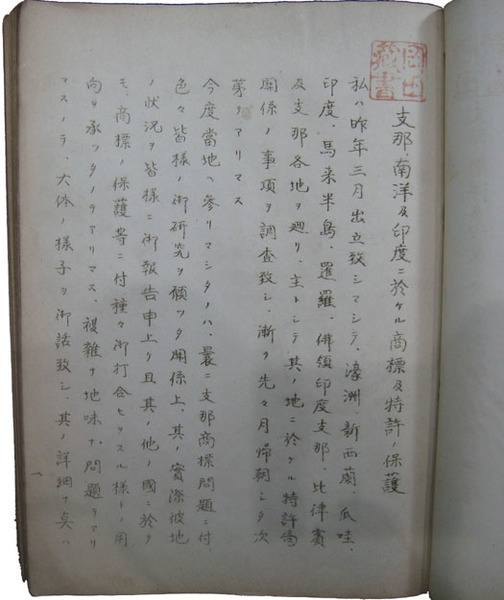 支那、南洋及印度ニ於ケル商標及特許ノ保護
私ハ昨年三月出立致シマシテ、濠洲、新西蘭、瓜哇、
印度、馬来半島、暹羅、佛領印度支那、比律賓
及支那各地ヲ廻リ、主トシテ其ノ地ニ於ケル特許
関係ノ事項ヲ調査致シ、漸ク先々月帰朝シタ次
第デアリマス
今度當地ヘ参リマシタノハ、曩ニ支那商標問題ニ付、
色々皆様ノ御研究ヲ願ツタ関係上、其ノ實際彼地
ノ状況ヲ皆様ニ御報告申上ゲ且其ノ他ノ國ニ於テ
モ、商標ノ保護等ニ付種々御打合セヲスル様トノ用
向ヲ承ツタノデアリマス、複雑ナ地味ナ問題デアリ
マスノデ、大体ノ様子ヲ御話致シ、其ノ詳細ナ点ハ
岡田
蔵書